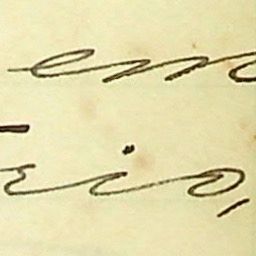 em
rio,